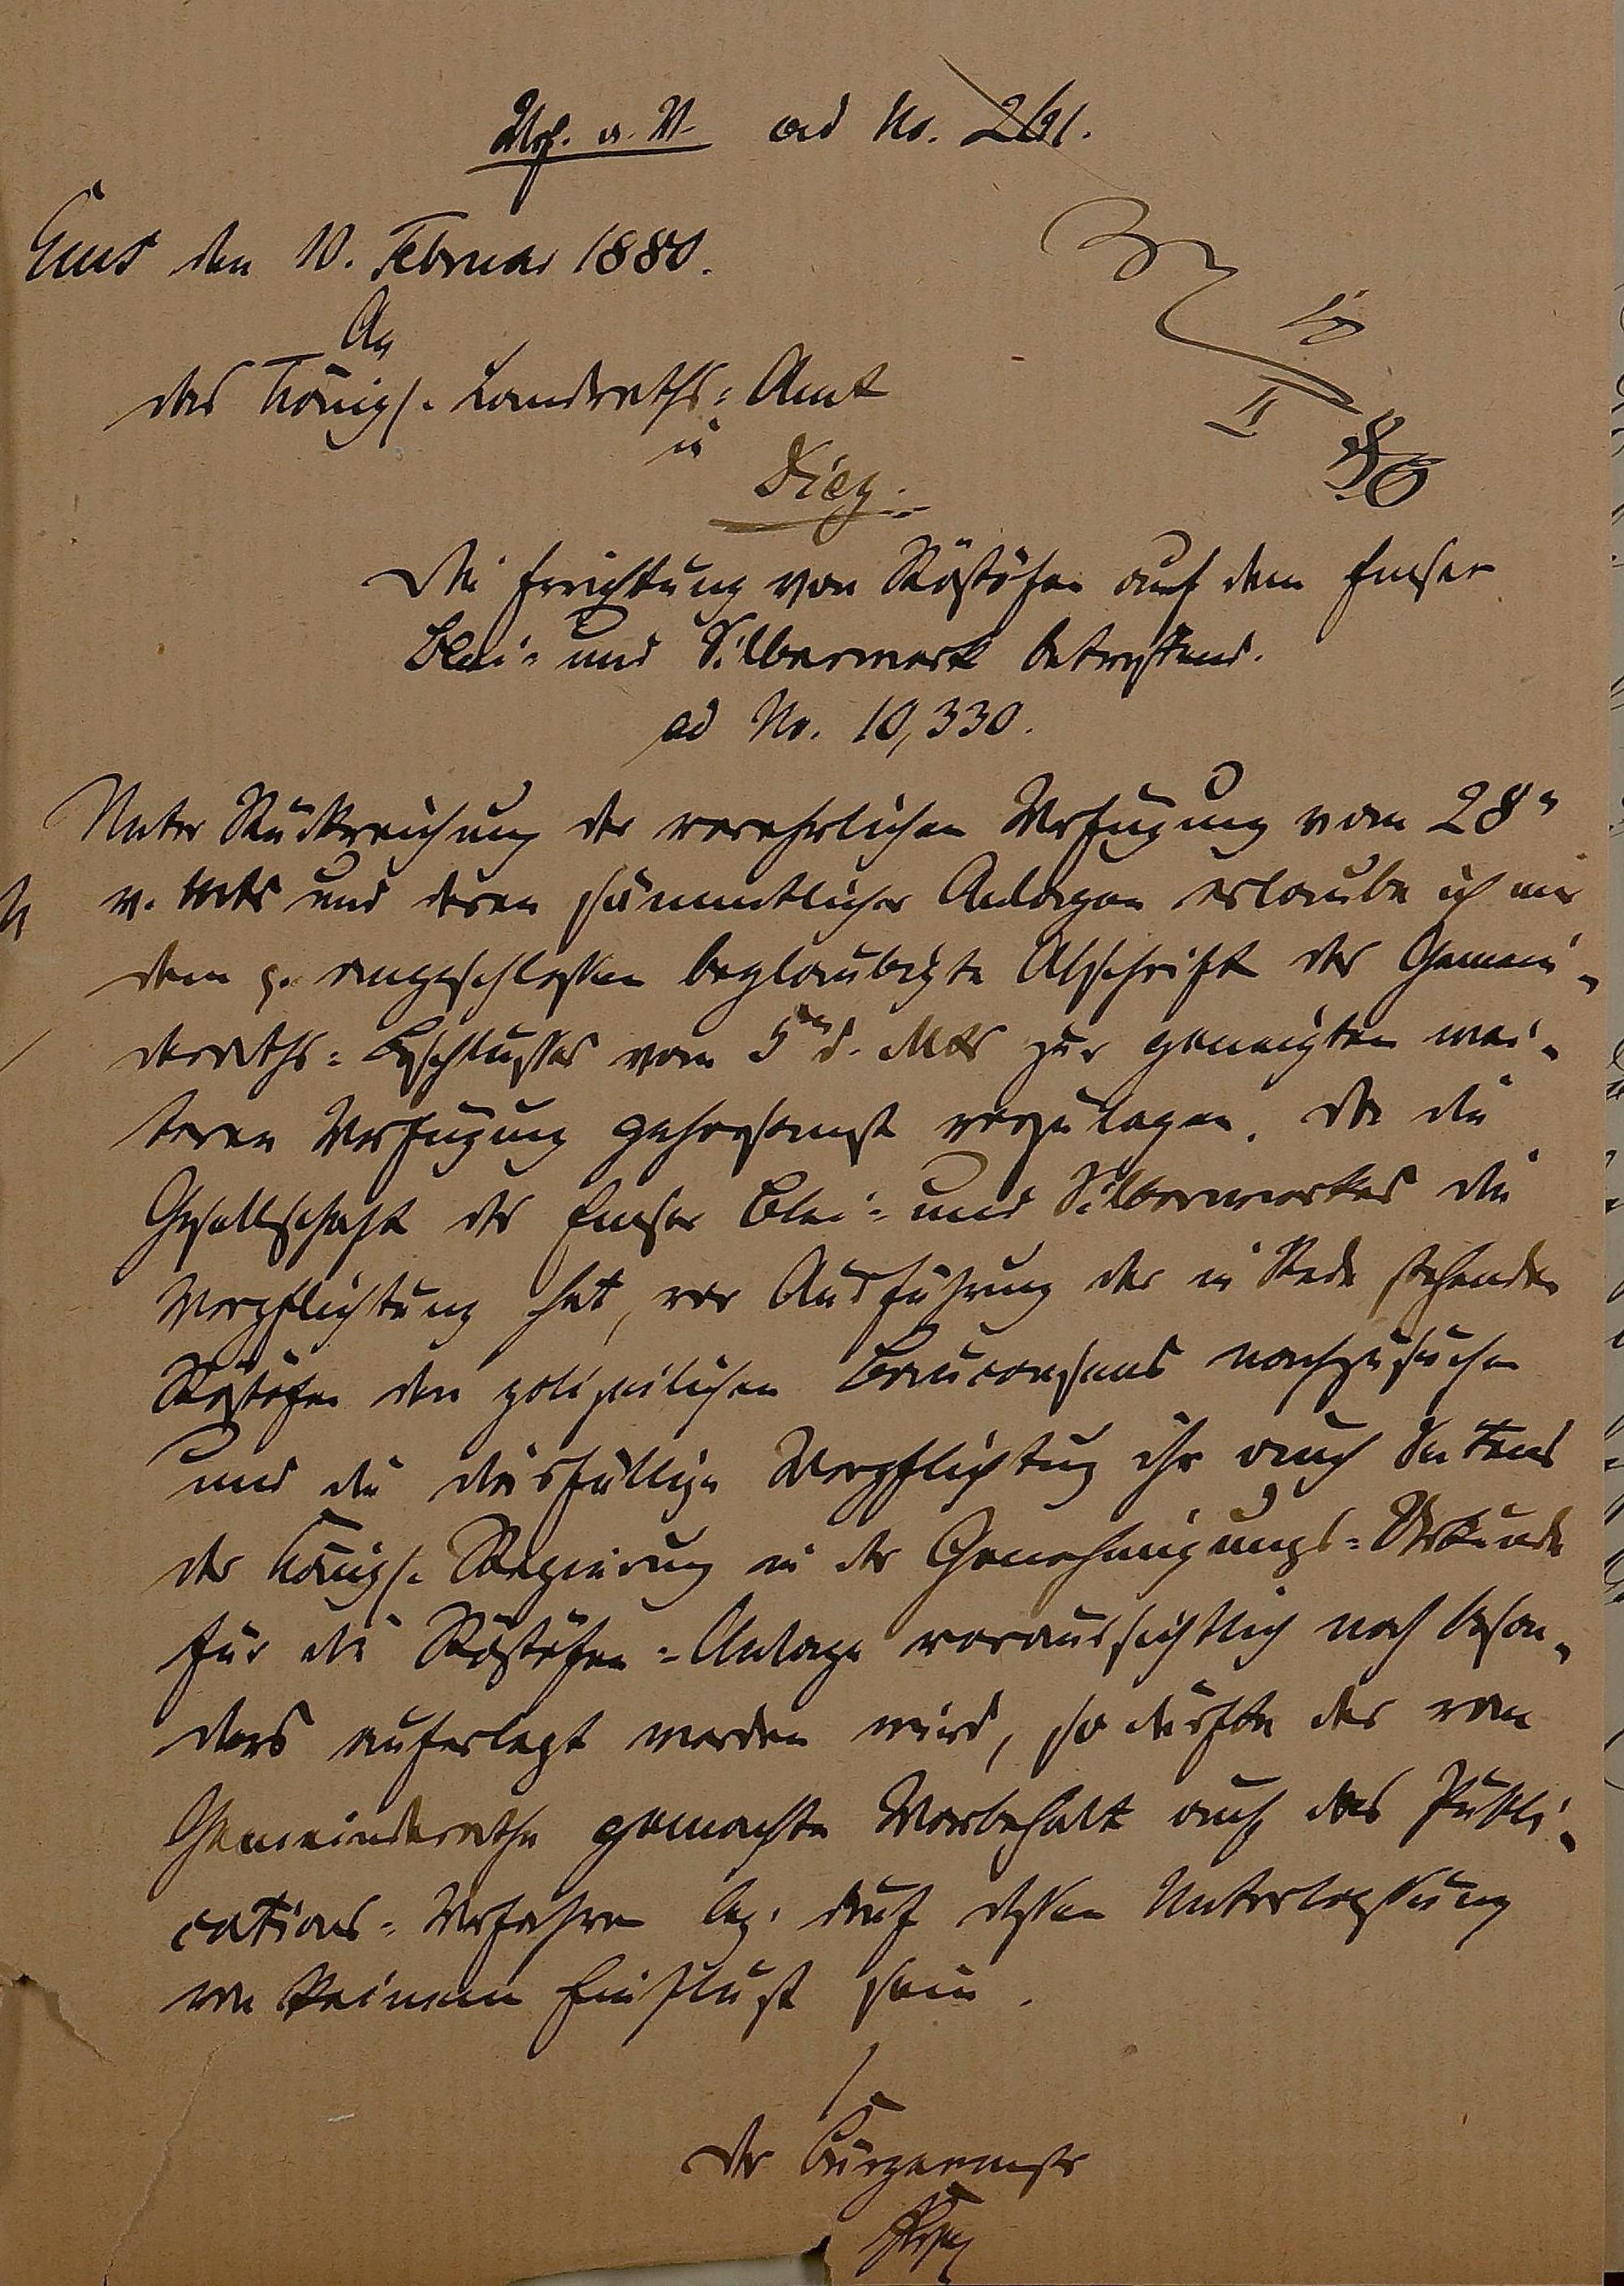 Urs. a. V. ad No. 261.
Ems den 10. Februar 1880.
An
das Königl. Landraths=Amt
in
Diez.
II
Die Errichtung von Röstöfen auf dem Emser
Blei- und Silberwerk betreffend.
ad No. 10,330.
Unter Rückreichung der verehrlichen Verfügung vom 28n
v. Mts und deren sämmtlicher Anlagen erlaube ich mir
dem p. angeschlossen beglaubigte Abschrift des Gemein-
deraths=Beschlusses vom 5ten d. Mts zur geneigten wei-
teren Verfügung gehorsamst vorzulegen. Da die
Gesellschaft des Emser Blei- und Silberwerkes die
Verpflichtung hat, vor Ausführung der in Rede stehenden
Röstöfen den polizeilichen Bauconsens nachzusuchen
und die diesfällige Verpflichtung ihr auch Seitens
der Königl. Regierung in der Genehmigungs=Urkunde
für die Röstöfen=Anlage voraussichtlich noch beson-
ders auferlegt werden wird, so dürfte der vom
Gemeinderathe gemachte Vorbehalt auf das Publi-
cations=Verfahren bez. auf dessen Unterlassung
von keinem Einfluß sein.
Der Bürgermstr